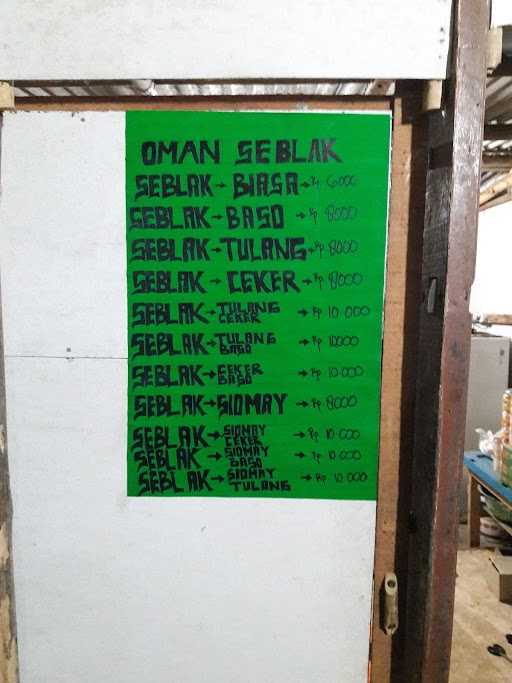 OMAN SEBLAK
SEBLAK → BIASA → Rp 6000
SEBLAK → BASO → Rp 8000
SEBLAK → TULANG → Rp 8000
SEBLAK → CEKER → Rp 8000
SEBLAK → TULANG CEKER → Rp 10.000
SEBLAK → TULANG BASO → Rp 10000
SEBLAK → CEKER BASO → Rp 10.000
SEBLAK → SIOMAY → Rp 8000
SEBLAK → SIOMAY CEKER → Rp 10.000
SEBLAK → SIOMAY BASO → Rp 10.000
SEBLAK → SIOMAY TULANG → Rp 10.000